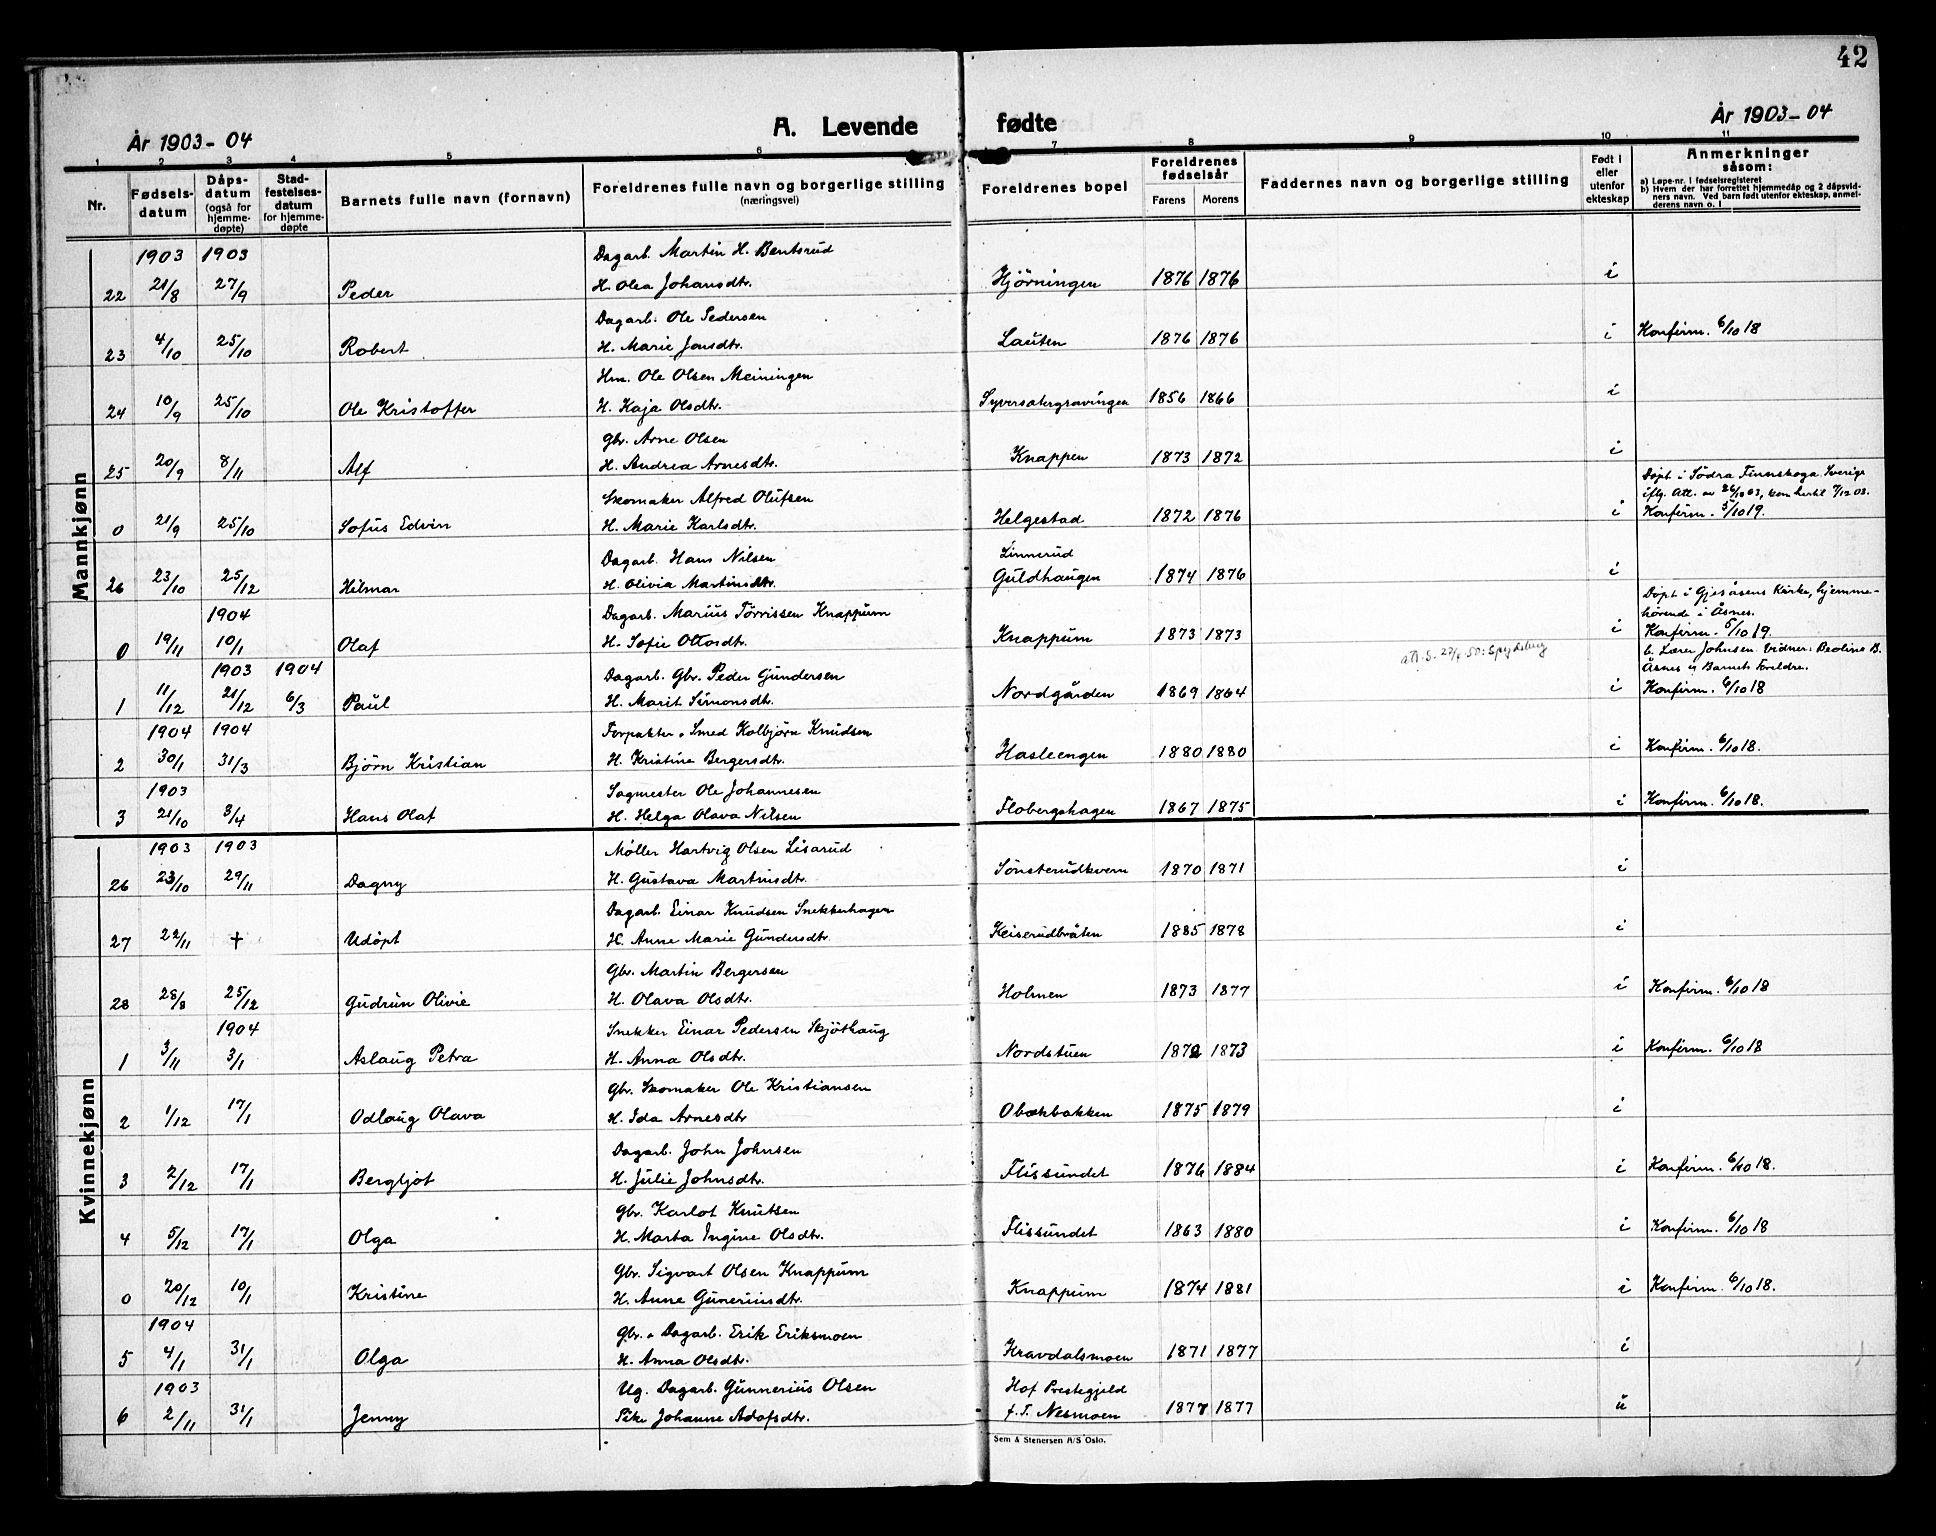 42
År 1903-04
A. Levende fødte
År 1903-04
1 2 3 4 5 6 7 8 9 10 11
Nr.
Fødsels-
datum
Dåps-
datum
(også for
hjemme-
døpte)
Stad-
festelses-
datum
for hjemme-
døpte
Barnets fulle navn (fornavn)
Foreldrenes fulle navn og borgerlige stilling
(næringsvei)
Foreldrenes bopel
Foreldrenes
fødselsår
Farens Morens
Faddernes navn og borgerlige stilling
Født i
eller
utenfor
ekteskap
Anmerkninger
såsom:
a) Løpe-nr. i fødselsregisteret
b) Hvem der har forrettet hjemmedåp og 2 dåpsvid-
ners navn. Ved barn født utenfor ekteskap, anmel-
derens navn o. l
Mannkjønn
1903 1903 Dagarb. Martin H. Bentsrud
22 21/8 27/9 Peder H. Olea Johansdtr. Hjörningen 1876 1876 i
Dagarb. Ole Pedersen
23 4/10 25/10 Robert H. Marie Jonsdtr. Lauten 1876 1876 i Konfirm. 6/10 18
Hm. Ole Olsen Meiningen
24 10/9 25/10 Ole Kristoffer H. Kaja Olsdtr. Syversætergravingen 1856 1866 i
Gbr. Arne Olsen
25 20/9 8/11 Alf H. Andrea Arnesdtr. Knappen 1873 1872 i
Skomaker Alfred Olufsen Döpt i Södra Finnskoga Sverige
iflg. Att. av 26/10 03, kom hertil 7/12 03.
0 21/9 25/10 Sofus Edvin H. Marie Karlsdtr. Helgestad 1872 1876 i Konfirm. 5/10 19.
Dagarb. Hans Nilsen Linnerud
26 23/10 25/12 Hilmar H. Olivia Martinsdtr. Guldhaugen 1874 1876 i
1904 Dagarb. Marius Törrissen Knappum Döpt i Gjesåsens Kirke, hjemme-
hörende i Åsnes.
0 19/11 10/1 Olaf H. Sofie Ottosdtr. Knappum 1873 1873 i Konfirm. 5/10 19.
1903 1904 Dagarb. Gbr. Peder Gundersen b. Lærer Johnsen. Vidner: Beoline B.
Åsnes og Barnets Foreldre.
1 11/12 21/12 6/3 Paul H. Marit Simonsdtr. Nordgården 1869 1864 i Konfirm. 6/10 18
1904 1904 Forpakter, Smed Kolbjörn Knudsen
2 30/1 31/3 Björn Kristian H. Kristine Bergersdtr. Hasleengen 1880 1880 i Konfirm. 6/10 18.
1903 Sagmester Ole Johannesen
3 21/10 3/4 Hans Olaf H. Helga Olava Nilsen Flobergshagen 1867 1875 i Konfirm. 6/10 18.
Kvinnekjønn
1903 1903 Möller Hartvig Olsen Lisarud
26 23/10 29/11 Dagny H. Gustava Martinsdtr. Sönsterudkvern 1870 1871 i
Dagarb. Einar Knudsen Snekkerhagen
27 22/11 + Udöpt H. Anne Marie Gundersdtr. Keiserudbråten 1885 1878 i
Gbr. Martin Bergersen
28 28/8 25/12 Gudrun Olivie H. Olava Olsdtr. Holmen 1873 1877 i Konfirm. 6/10 18
1904 Snekker Einar Pedersen Skjöthaug
1 3/11 3/1 Aslaug Petra H. Anna Olsdtr. Nordstuen 1872 1873 i Konfirm. 6/10 18
Gbr. Skomaker Ole Kristiansen
2 1/12 17/1 Odlaug Olava H. Ida Arnesdtr Obækbakken 1875 1879 i
Dagarb. John Johnsen
3 2/12 17/1 Bergljot H. Julie Johnsdtr. Flissundet 1876 1884 i Konfirm. 6/10 18.
Gbr. Karlot Knutsen
4 5/12 17/1 Olga H. Marta Ingine Olsdtr. Flissundet 1863 1880 i Konfirm. 6/10 18
Gbr. Sigvart Olsen Knappum
0 20/12 10/1 Kristine H. Anne Guneriusdtr. Knappum 1874 1881 i Konfirm. 6/10 18.
1904 Gbr. & Dagarb. Erik Eriksmoen
5 4/1 31/1 Olga H. Anna Olsdtr. Kravdalsmoen 1871 1877 i
1903 Ug. Dagarb. Gunnerius Olsen Hof Prestegjeld
6 2/11 31/1 Jenny Pike Johanne Adofsdtr. f.T. Nesmoen 1877 1877 u
Sem & Stenersen A/S Oslo.